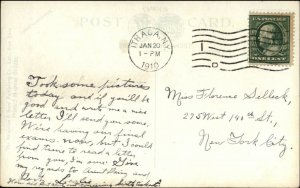 POST CARD
ITHACA, N.Y.
JAN 20
1-PM
1910
U.S. POSTAGE
ONE CENT
Took some pictures
today, and if you'll be
good and write me a nice
letter, I'll send you some
We're having our final
exams, now, but I could
find time to read a letter
from you, I'm sure. Give
my regards to
Miss Florence Selleck,
225 West 141st St.,
New York City.